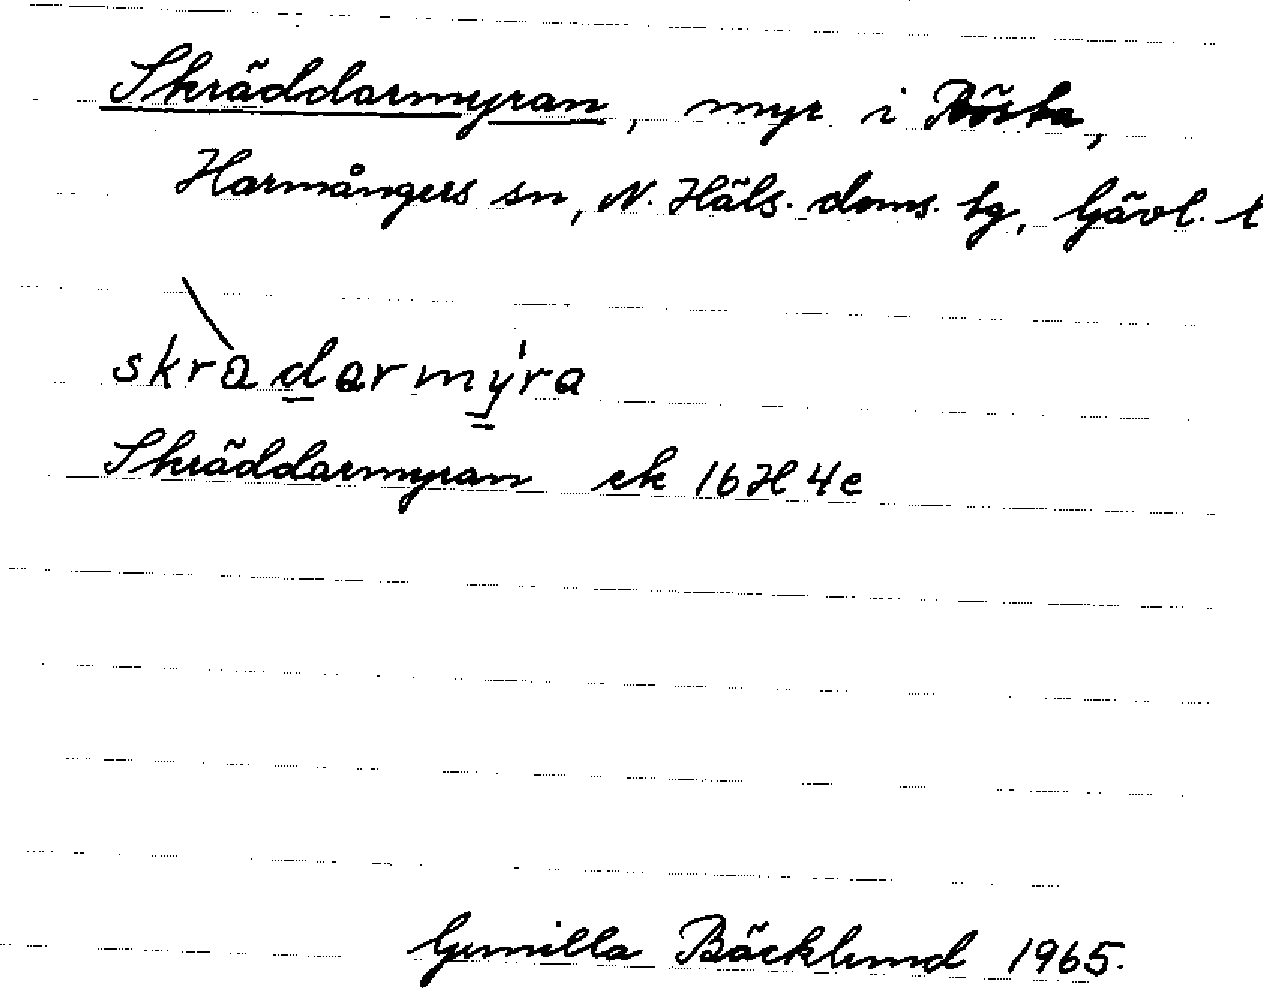 Skräddarmyran, myr i Bösta,
Harmångers sn, N. Häls. doms. tg, Gävl. l
skràdarmýra
Skräddarmyran ek 16H4e
Gunilla Bäcklund 1965.